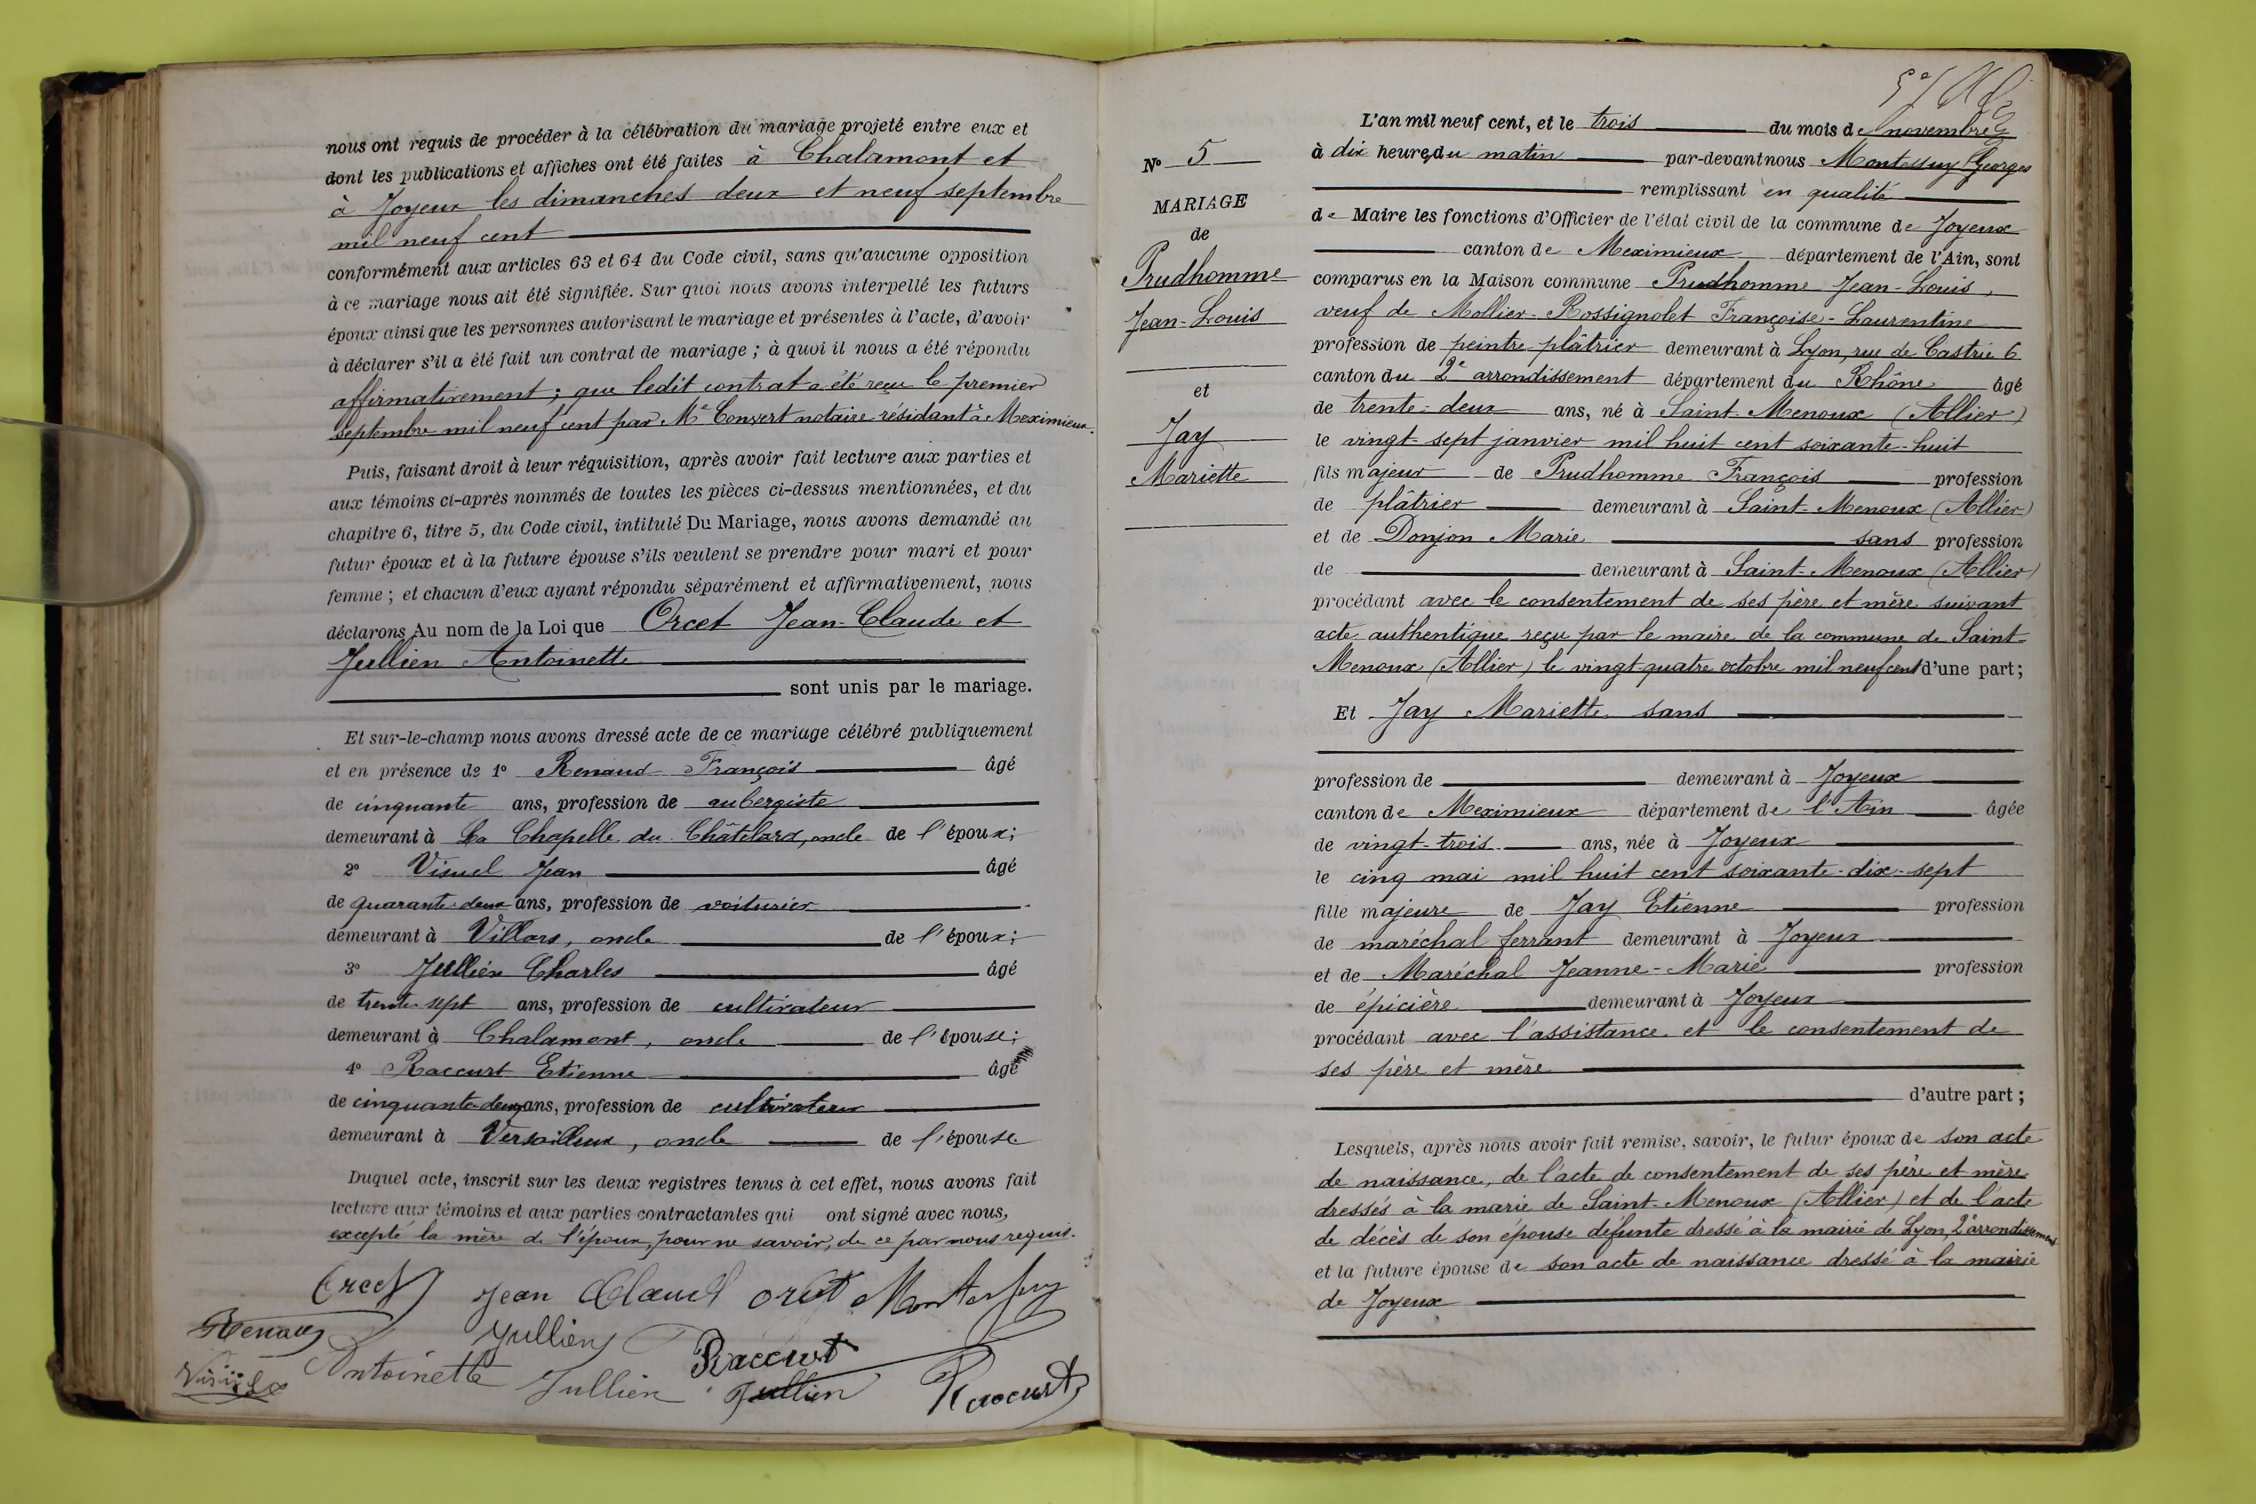 nous ont requis de procéder à la célébration du mariage projeté entre eux et
dont les publications et affiches ont été faites à Chalamont et
à Joyeux les dimanches deux et neuf septembre
mil neuf cent
conformément aux articles 63 et 64 du Code civil, sans qu'aucune opposition
à ce mariage nous ait été signifiée. Sur quoi nous avons interpellé les futurs
époux ainsi que les personnes autorisant le mariage et présentes à l'acte, d'avoir
à déclarer s'il a été fait un contrat de mariage ; à quoi il nous a été répondu
affirmativement ; que ledit contrat a été reçu le premier
septembre mil neuf cent par Me Convert notaire résidant à Meximieux.
Puis, faisant droit à leur réquisition, après avoir fait lecture aux parties et
aux témoins ci-après nommés de toutes les pièces ci-dessus mentionnées, et du
chapitre 6, titre 5, du Code civil, intitulé Du Mariage, nous avons demandé au
futur époux et à la future épouse s'ils veulent se prendre pour mari et pour
femme ; et chacun d'eux ayant répondu séparément et affirmativement, nous
déclarons Au nom de la Loi que Orcet Jean-Claude et
Jullien Antoinette
sont unis par le mariage.
Et sur-le-champ nous avons dressé acte de ce mariage célébré publiquement
et en présence de 1º Renaud François âgé
de cinquante ans, profession de aubergiste
demeurant à La Chapelle du Châtelard, oncle de l'époux ;
2º Visuel Jean âgé
de quarante-deux ans, profession de voiturier
demeurant à Villars, oncle de l'époux ;
3º Jullien Charles âgé
de trente-sept ans, profession de cultivateur
demeurant à Chalamont, oncle de l'épouse ;
4º Raccurt Etienne âgé
de cinquante-deux ans, profession de cultivateur
demeurant à Versailleux, oncle de l'épouse
Duquel acte, inscrit sur les deux registres tenus à cet effet, nous avons fait
lecture aux témoins et aux parties contractantes qui ont signé avec nous,
excepté la mère de l'époux, pour ne savoir, de ce par nous requis.
Orcet Jean Claud orcet Montessuy
Renaud Jullien Raccurt
Antoinette Jullien Jullien Raccurt
Nº 5
MARIAGE
de
Prudhomme
Jean-Louis
et
Jay
Mariette
L'an mil neuf cent, et le trois du mois de novembre
à dix heures du matin par-devant nous Montessuy Georges
remplissant en qualité
de Maire les fonctions d'Officier de l'état civil de la commune de Joyeux
canton de Meximieux département de l'Ain, sont
comparus en la Maison commune Prudhomme Jean-Louis,
veuf de Mollier-Rossignolet Françoise-Laurentine
profession de peintre plâtrier demeurant à Lyon, rue de Castrie 6
canton du 2e arrondissement département du Rhône âgé
de trente-deux ans, né à Saint-Menoux (Allier)
le vingt-sept janvier mil huit cent soixante-huit
fils majeur de Prudhomme François profession
de plâtrier demeurant à Saint-Menoux (Allier)
et de Donjon Marie sans profession
de demeurant à Saint-Menoux (Allier)
procédant avec le consentement de ses père et mère suivant
acte authentique reçu par le maire de la commune de Saint-
Menoux (Allier) le vingt-quatre octobre mil neuf cent d'une part ;
Et Jay Mariette sans
profession de demeurant à Joyeux
canton de Meximieux département de l'Ain âgée
de vingt-trois ans, née à Joyeux
le cinq mai mil huit cent soixante-dix-sept
fille majeure de Jay Etienne profession
de maréchal ferrant demeurant à Joyeux
et de Maréchal Jeanne-Marie profession
de épicière demeurant à Joyeux
procédant avec l'assistance et le consentement de
ses père et mère
d'autre part ;
Lesquels, après nous avoir fait remise, savoir, le futur époux de son acte
de naissance, de l'acte de consentement de ses père et mère
dressés à la marie de Saint-Menoux (Allier) et de l'acte
de décès de son épouse défunte dressé à la mairie de Lyon, 2e arrondissement
et la future épouse de son acte de naissance dressé à la mairie
de Joyeux